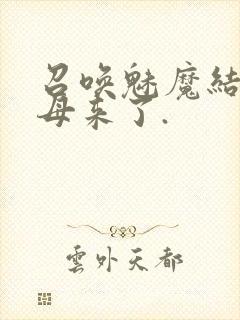 召唤魅魔结
母来了.
雲外天都